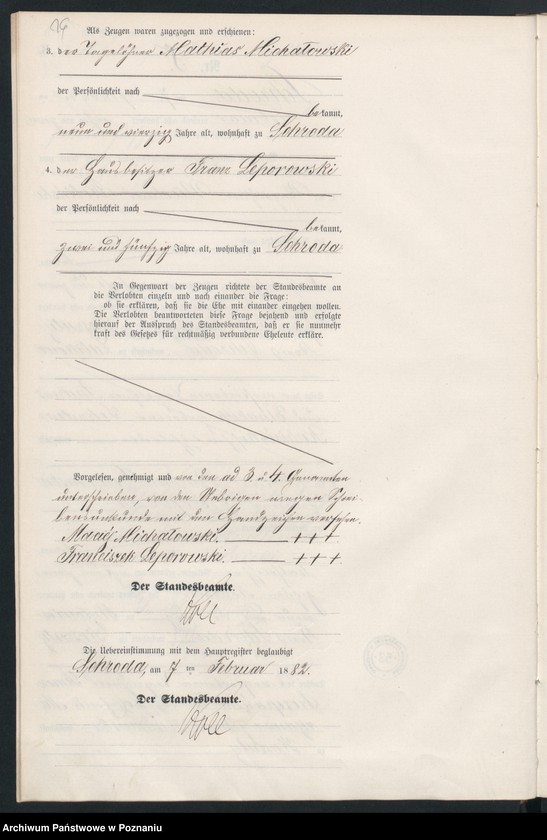 Als Zeugen waren zugezogen und erschienen:
3. der Tagelöhner Mathias Michałowski
der Persönlichkeit nach
bekannt,
neun und vierzig Jahre alt, wohnhaft zu Schroda
4. der Hausbesitzer Franz Leporowski
der Persönlichkeit nach
bekannt,
zwei und fünfzig Jahre alt, wohnhaft zu Schroda
In Gegenwart der Zeugen richtete der Standesbeamte an
die Verlobten einzeln und nach einander die Frage:
ob sie erklären, daß sie die Ehe mit einander eingehen wollen.
Die Verlobten beantworteten diese Frage bejahend und erfolgte
hierauf der Ausspruch des Standesbeamten, daß er sie nunmehr
kraft des Gesetzes für rechtmäßig verbundene Eheleute erkläre.
Vorgelesen, genehmigt und von den ad 3 u. 4. Genannten
unterschrieben, von den Uebrigen wegen Schrei-
bensunkunde mit den Handzeichen versehen.
Maciej Michałowski. +++
Franciszek Leporowski. +++.
Der Standesbeamte.
Die Uebereinstimmung mit dem Hauptregister beglaubigt
Schroda, am 7 ten Februar 1882.
Der Standesbeamte.
Archiwum Państwowe w Poznaniu